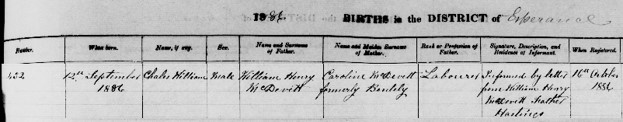 1886 BIRTHS in the DISTRICT of
Number. When born. Name, if any. Sex. Name and Surname of Father. Name and Maiden Surname of Mother. Rank or Profession of Father. Signature, Description, and Residence of Informant. When Registered.
432 12th September 1886 Charles William Male William Henry McDevitt Caroline McDevitt formerly Labourer Informed by letter from William Henry McDevitt Father Hastings 16th October 1886